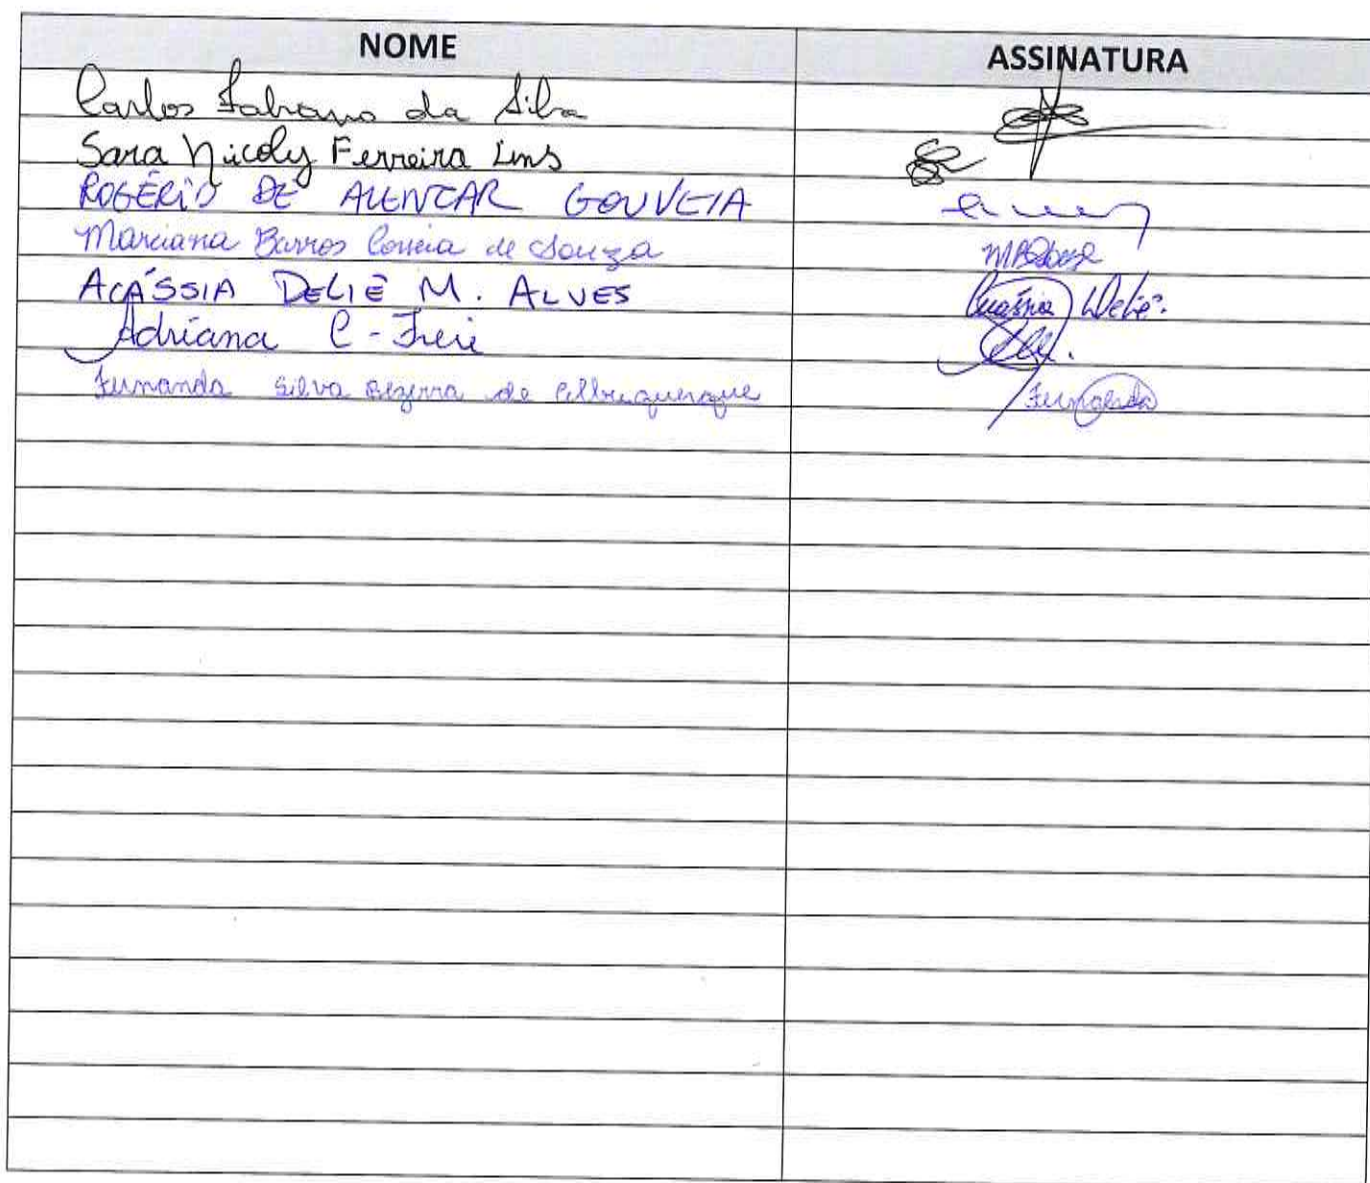 NOME ASSINATURA
Carlos Fabiano da Silva
Sara Nicoly Ferreira Lins
ROGÉRIO DE ALENCAR GOUVEIA
Marciana Barros Correia de Souza
ACÁSSIA DELIÊ M. ALVES Acássia Deliê.
Adriana C - Freire
Fernanda Silva Bezerra de Albuquerque Fernanda